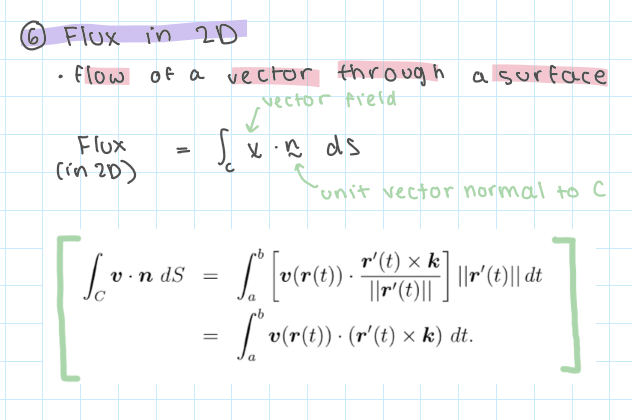 ⑥ Flux in 2D
• flow of a vector through a surface
vector field
Flux (in 2D) = ∫_C v · n ds
unit vector normal to C
∫_C v · n dS = ∫_a^b [ v(r(t)) · (r′(t) × k) / ||r′(t)|| ] ||r′(t)|| dt
= ∫_a^b v(r(t)) · (r′(t) × k) dt.